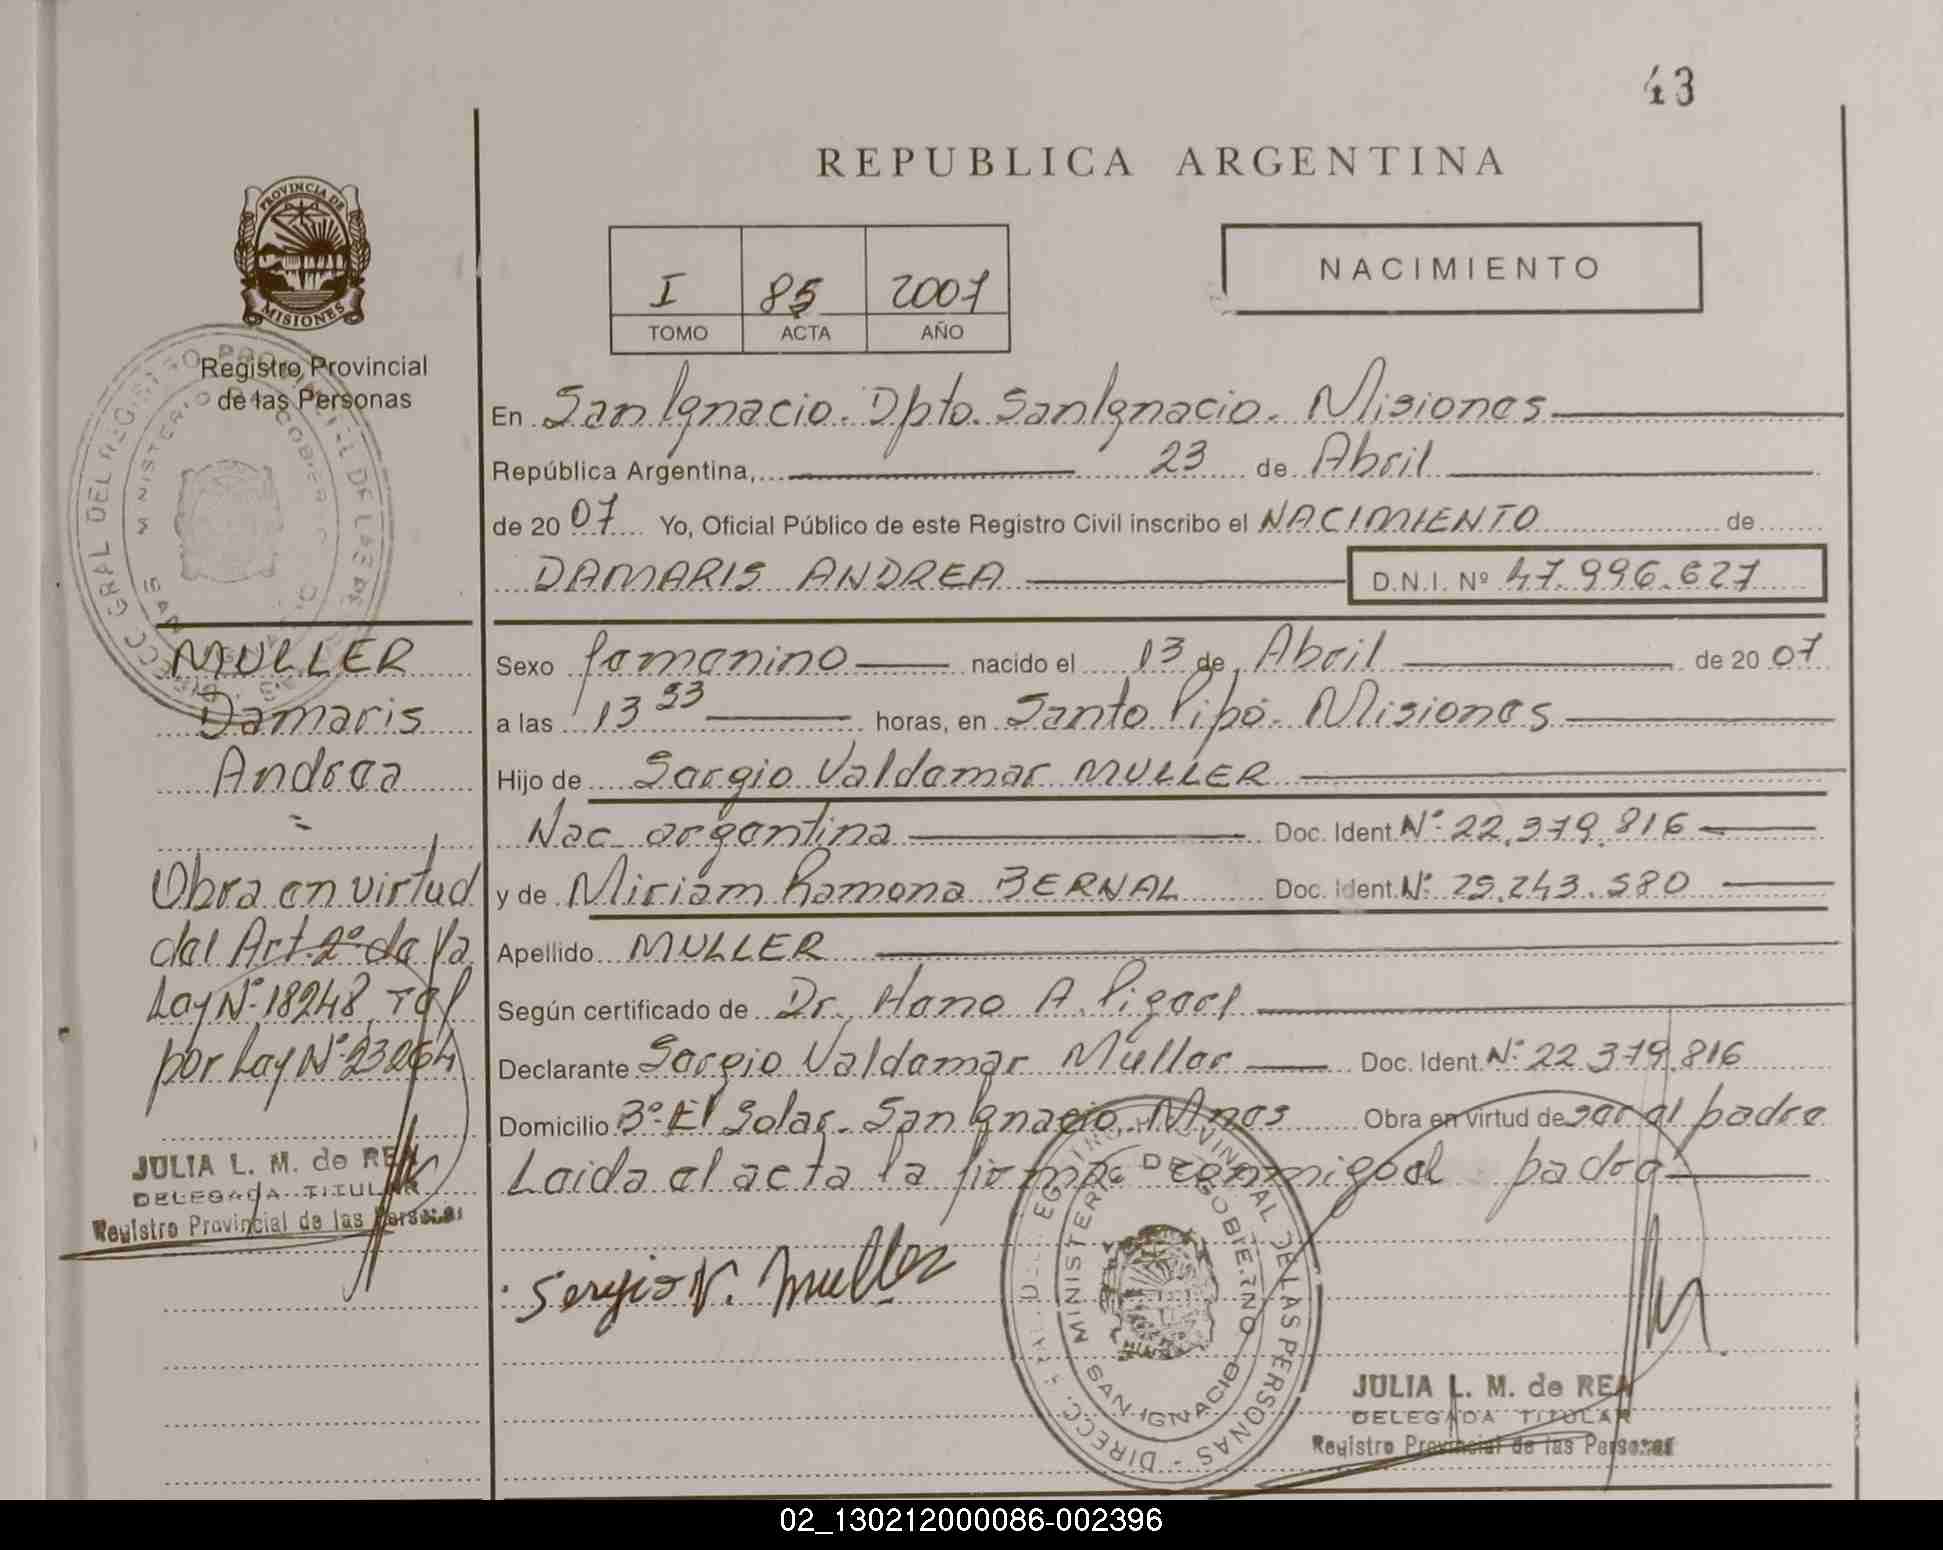 43
REPUBLICA ARGENTINA
PROVINCIA DE
MISIONES
Registro Provincial
de las Personas
I 85 2007
TOMO ACTA AÑO
NACIMIENTO
En San Ignacio. Dpto. San Ignacio. Misiones
República Argentina, 23 de Abril
de 2007 Yo, Oficial Público de este Registro Civil inscribo el NACIMIENTO de
DAMARIS ANDREA D.N.I. Nº 47.996.627
Sexo femenino nacido el 13 de Abril de 2007
a las 13 53 horas, en Santo Pipó. Misiones
Hijo de Sergio Valdemar MULLER
Nac. argentina Doc. Ident. Nº 22.379.816
y de Miriam Ramona BERNAL Doc. Ident. Nº 25.243.580
Apellido MULLER
Según certificado de Dr. A.
Declarante Sergio Valdemar Muller Doc. Ident. Nº 22.379.816
Domicilio Bº El Solar. San Ignacio. Mnes Obra en virtud de ser el padre
Leida el acta la firma conmigo el padre
Sergio V. Muller
MULLER
Damaris
Andrea
=
Obra en virtud
del Art. 2º de la
Ley Nº 18248, ref
por Ley Nº 23264
JULIA L. M. de REA
DELEGADA TITULAR
Registro Provincial de las Personas
DIRECC. GRAL. DEL REGISTRO PROVINCIAL DE LAS PERSONAS
MINISTERIO DE GOBIERNO
SAN IGNACIO
JULIA L. M. de REA
DELEGADA TITULAR
Registro Provincial de las Personas
02_130212000086-002396